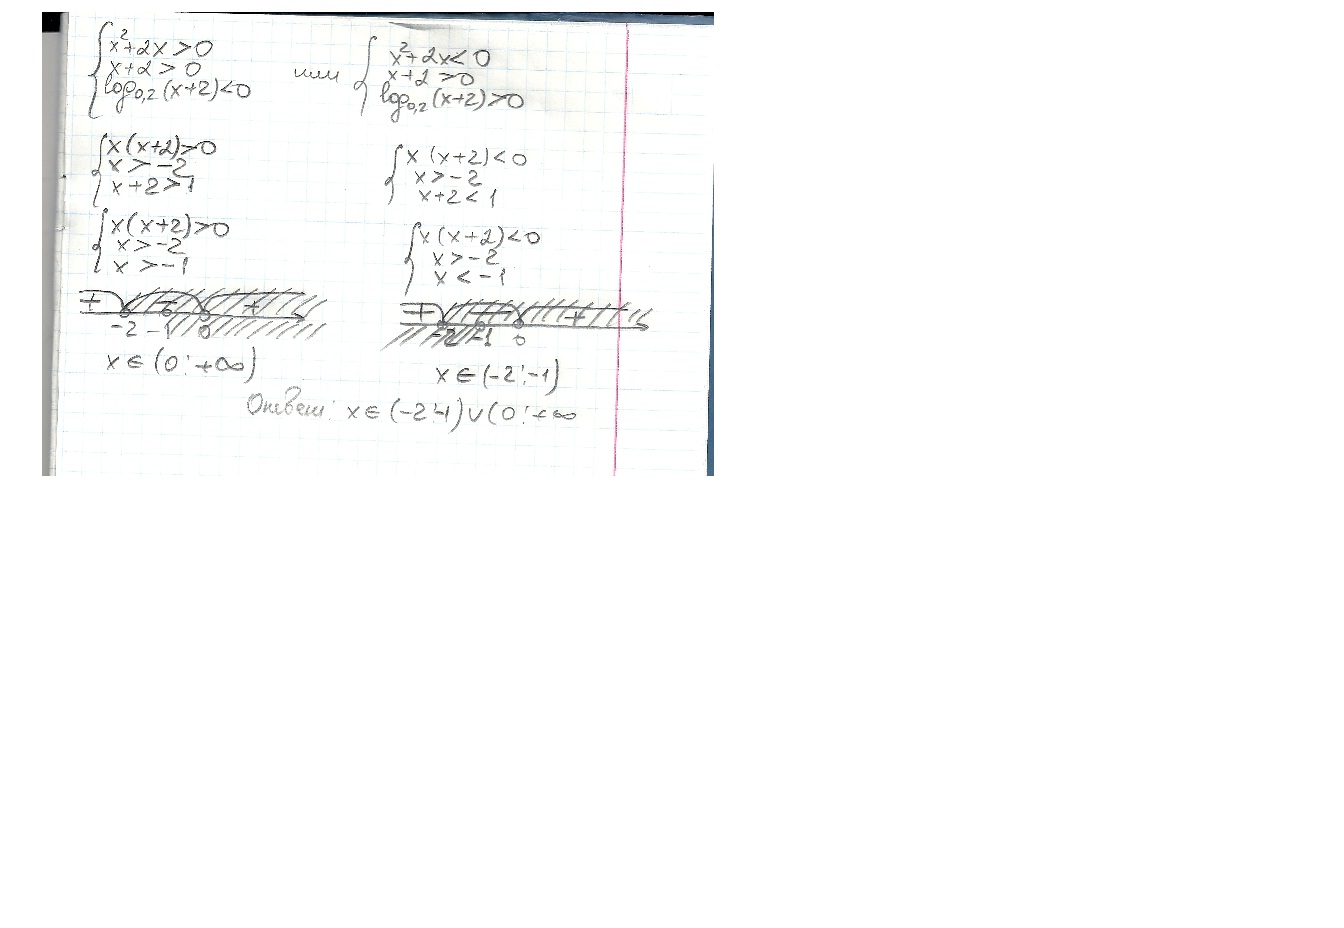 x²+2x>0
x+2>0
log₀,₂(x+2)<0
или
x²+2x<0
x+2>0
log₀,₂(x+2)>0
x(x+2)>0
x>-2
x+2>1
x(x+2)<0
x>-2
x+2<1
x(x+2)>0
x>-2
x>-1
x(x+2)<0
x>-2
x<-1
+ - +
-2 -1 0
+ - +
-2 -1 0
x∈(0;+∞)
x∈(-2;-1)
Ответ: x∈(-2;-1)∪(0;+∞